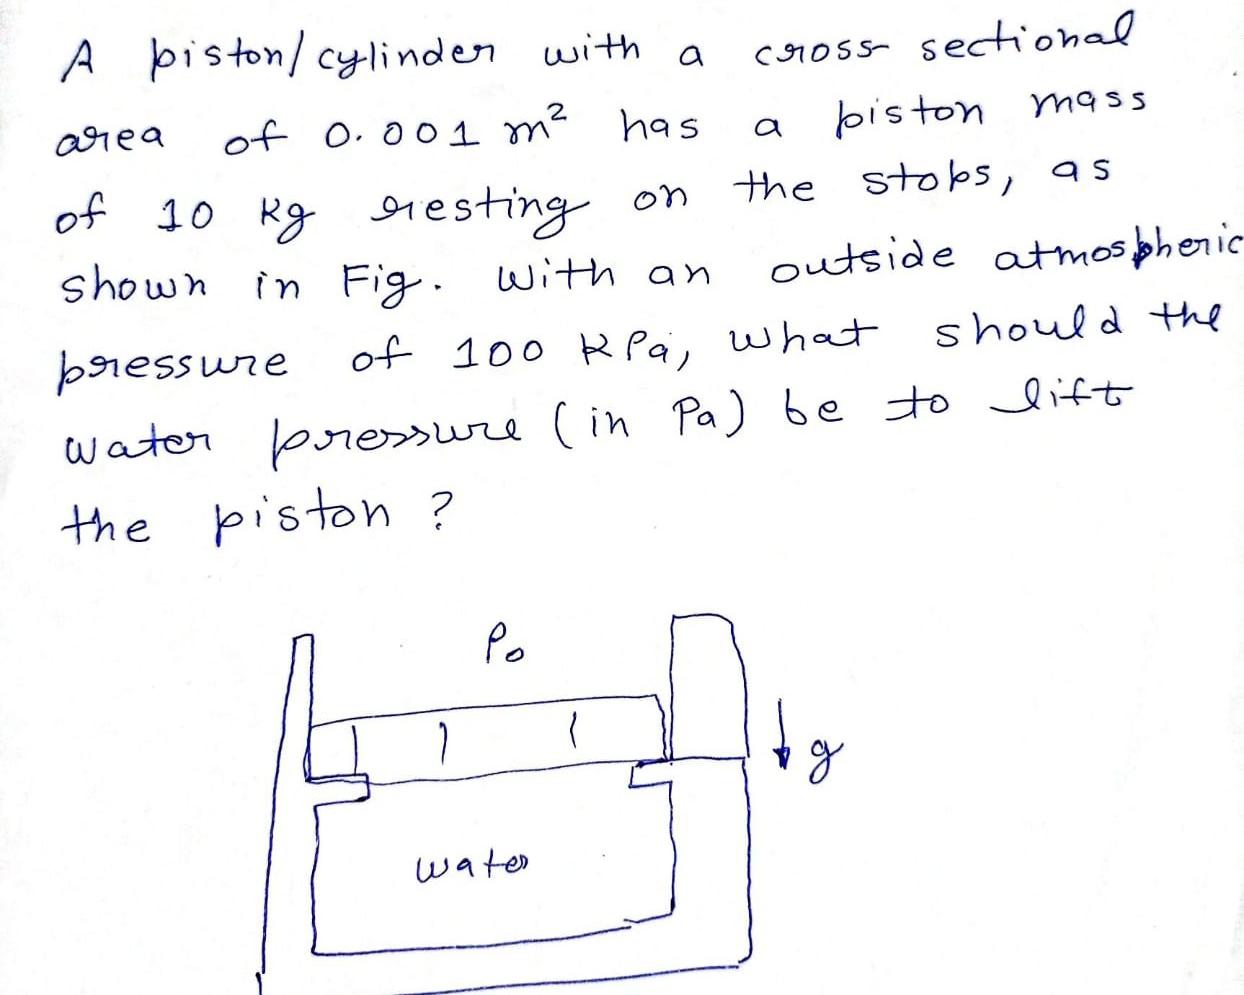 A piston/cylinder with a cross sectional
area of 0.001 m² has a piston mass
of 10 kg resting on the stops, as
shown in Fig. With an outside atmospheric
pressure of 100 kPa, what should the
water pressure (in Pa) be to lift
the piston ?
P₀
g
water